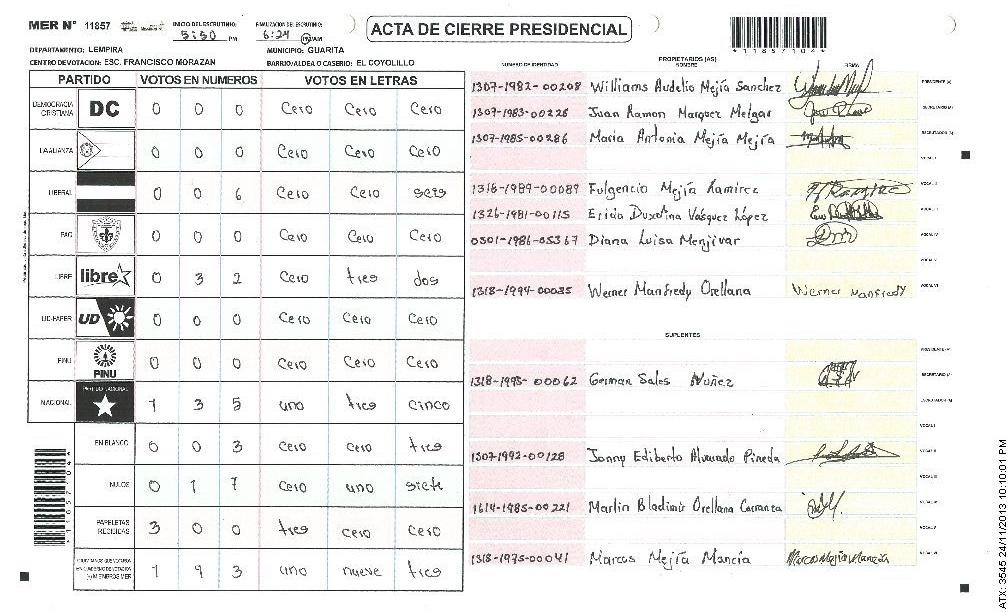 MER N° 11857
INICIO DEL ESCRUTINIO: 5:50 PM
FINALIZACION DEL ESCRUTINIO: 6:24 PM/AM
ACTA DE CIERRE PRESIDENCIAL
*11857104*
DEPARTAMENTO: LEMPIRA
MUNICIPIO: GUARITA
CENTRO DE VOTACION: ESC. FRANCISCO MORAZAN
BARRIO/ALDEA O CASERIO: EL COYOLILLO
PARTIDO VOTOS EN NUMEROS VOTOS EN LETRAS
DEMOCRACIA CRISTIANA DC 0 0 0 Cero Cero Cero
LA ALIANZA 0 0 0 Cero Cero Cero
LIBERAL 0 0 6 Cero Cero seis
PAC 0 0 0 Cero Cero Cero
LIBRE libre 0 3 2 Cero tres dos
UD-FAPER UD 0 0 0 Cero Cero Cero
PINU PINU 0 0 0 Cero Cero Cero
NACIONAL PARTIDO NACIONAL 1 3 5 uno tres cinco
EN BLANCO 0 0 3 Cero cero tres
NULOS 0 1 7 cero uno siete
PAPELETAS RECIBIDAS 3 0 0 tres cero cero
CIUDADANOS QUE VOTARON EN CUADERNO DE VOTACION (+) MIEMBROS MER 1 9 3 uno nueve tres
PROPIETARIOS (AS)
NUMERO DE IDENTIDAD NOMBRE FIRMA
1307-1982-00208 Williams Audelio Mejía Sanchez PRESIDENTE (A)
1307-1983-00226 Juan Ramon Marquez Melgar SECRETARIO (A)
1307-1985-00286 Maria Antonia Mejía Mejía ESCRUTADOR (A)
VOCAL I
1318-1989-00089 Fulgencio Mejía Ramirez VOCAL II
1326-1981-00115 Erida Duxolina Vasquez López VOCAL III
0501-1986-05367 Diana Luisa Menjivar VOCAL IV
VOCAL V
1318-1994-00035 Werner Manfredy Orellana Werner Manfredy VOCAL VI
SUPLENTES
PRESIDENTE (A)
1318-1995-00062 German Sales Nuñez SECRETARIO (A)
ESCRUTADOR (A)
VOCAL I
1307-1992-00128 Jonny Ediberto Alvarado Pineda VOCAL II
VOCAL III
1614-1985-00221 Marlin Bladimir Orellana Carranza VOCAL IV
VOCAL V
1318-1975-00041 Marcos Mejía Mancía Marcos Mejía Mancía VOCAL VI
*11857104*
ATX: 3545 24/11/2013 10:10:01 PM